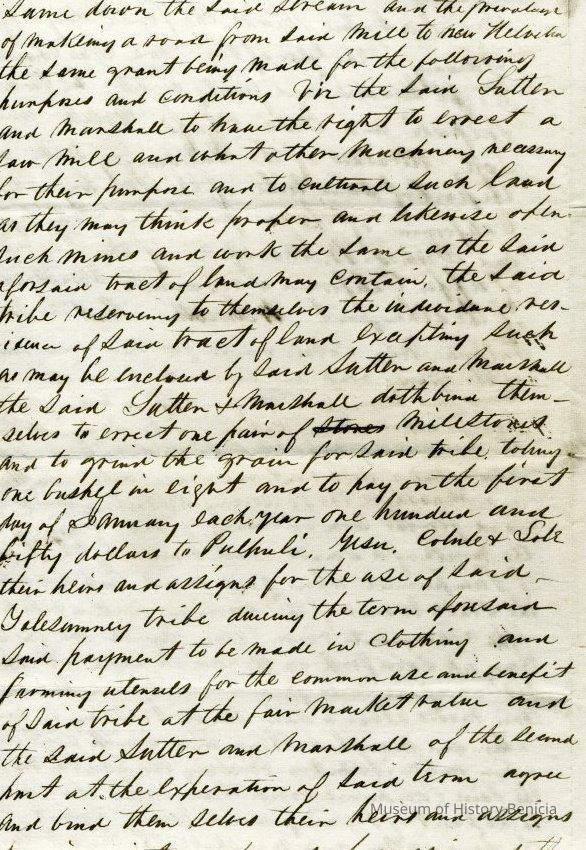 same down the said stream and the privalage
of making a road from said mill to new Helvetia
the same grant being made for the following
purposes and conditions Viz the said Sutter
and Marshall to have the right to errect a
saw mill and what other machinery necessary
for their purpose and to cultivate such land
as they may think proper and likewise open
such mines and work the same as the said
aforsaid tract of land may contain, the said
tribe reserveing to themselves the
of said tract of land excepting such
as may be enclosed by said Sutter and Marshall
the said Sutter & Marshall doth bind them-
selves to errect one pair of stones milestones
and to grind the grain for said tribe, toling
one bushel in eight and to pay on the first
day of January each year one hundred and
fifty dollars to Pulpuli, Gesu, Colule & Sole
their heirs and assigns for the use of said -
Yalesumney tribe dureing the term aforesaid
said payment to be made in Clothing and
farming utensels for the common use and benefit
of said tribe at the fair market value and
the said Sutter and Marshall of the second
part at the experation of said term agree
and bind them selves their heirs and assigns
Museum of History Benicia